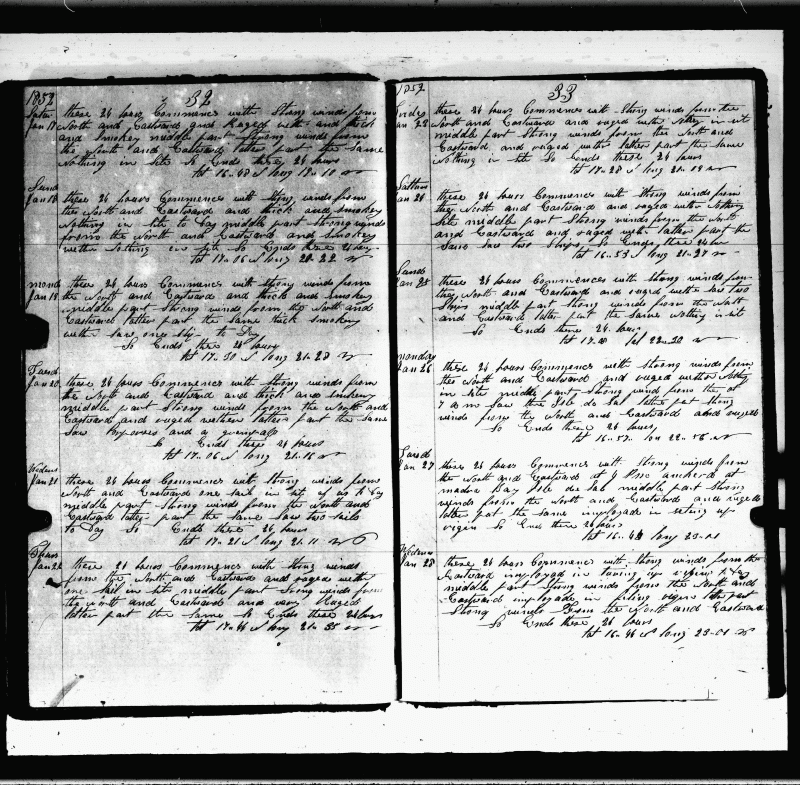 1852 32
Satur these 24 hours Commences with Strong winds from
Jan 17 North and Eastward and raged with and thick
and Smokey middle part Strong winds from
the North and Eastward latter part the Same
Nothing in site So Ends these 24 hours
lat 16-48 N long 19-10 W
Sund these 24 hours Commences with Strong winds from
Jan 18 the North and Eastward and thick and Smokey
Nothing in site to day middle part Strong winds
from the North and Eastward and Smokey
with Nothing in site So Ends these 24 hours
lat 17-06 N long 20-22 W
mond these 24 hours Commences with Strong winds from
Jan 19 the North and Eastward and thick and Smokey
middle part Strong winds from the North and
Eastward latter part the Same thick Smokey
with Saw one Ship to Day
So Ends these 24 hours
lat 17-30 N long 21-28 W
Tuesd these 24 hours Commences with Strong winds from
Jan 20 the North and Eastward and thick and Smokey
middle part Strong winds from the North and
Eastward and raged wether latter part the Same
Saw and a
So Ends these 24 hours
lat 17-06 N long 21-16 W
Wednes these 24 hours Commences with Strong winds from
Jan 21 North and Eastward one Sail in Sit of us to day
middle part Strong winds from the North and
Eastward latter part the Same Saw two Sails
To Day So Ends these 24 hours
lat 17-21 N long 21-11 W
Thurs these 24 hours Commences with Strong winds
Jan 22 from the North and Eastward and raged with
one Sail in Site middle part Strong winds from
the North and Eastward and very raged
latter part the Same So Ends these 24 hours
lat 17-44 N long 21-35 W
1852 33
Friday these 24 hours Commences with Strong winds from the
Jan 23 North and Eastward and raged with Nothing in sit
middle part Strong winds from the North and
Eastward and raged wether latter part the Same
Nothing in Site So Ends these 24 hours
lat 17-28 N long 21-19 W
Satturn these 24 hours Commences with Strong winds from
Jan 24 the North and Eastward and raged with Nothing
Site middle part Strong winds from the North
and Eastward and raged with latter part the
Same Saw two Ships So Ends these 24 hours
lat 16-53 N long 21-27 W
Sund these 24 hours Commences with Strong winds from
Jan 25 the North and Eastward and raged with Saw two
Ships middle part Strong winds from the North
and Eastward latter part the Same Nothing in Sit
So Ends these 24 hours
lat 22-30 W
monday these 24 hours Commences with Strong winds from
Jan 26 the North and Eastward and raged wether Nothing
in Site middle part Strong wind from the at
7 a m Saw the Isle de Sal latter part Strong
winds from the North and Eastward and raged
So Ends these 24 hours
lat 16-57 lon 22-56 W
Tuesd these 24 hours Commences with Strong winds from
Jan 27 the North and Eastward at anchord at
madra Bay Isle de Sal middle part Strong
winds from the North and Eastward and raged
latter part the Same imployed in Seting up
rigen So Ends these 24 hours
lat 16-44 long 23-01
Wednes these 24 hours Commences with Strong winds from the
Jan 28 Eastward imployed in up rigen to day
middle part Strong winds from the North and
Eastward imployed in rigen latter part
Strong winds From the North and Eastward
So Ends these 24 hours
lat 16-46 N long 23-01 W